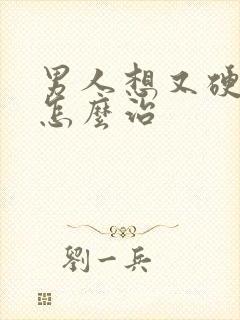 男人想又硬
怎麼治
劉一兵